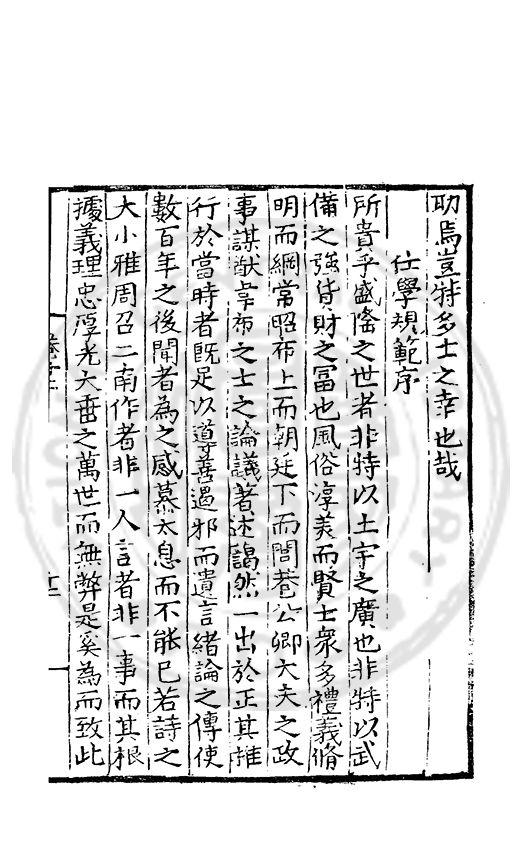 助焉豈特多士之幸也哉
仕學規範序
所貴乎盛隆之世者非特以土宇之廣也非特以武
備之強貨財之冨也風俗淳美而賢士衆多禮義脩
明而綱常昭布上而朝廷下而閭巷公卿大夫之政
事謀猷韋布之士之論議著述藹然一出於正其推
行於當時者旣足以導善遏邪而遺言緒論之傳使
數百年之後聞者為之感慕太息而不能已若詩之
大小雅周召二南作者非一人言者非一事而其根
據義理忠厚光大垂之萬世而無弊是奚為而致此